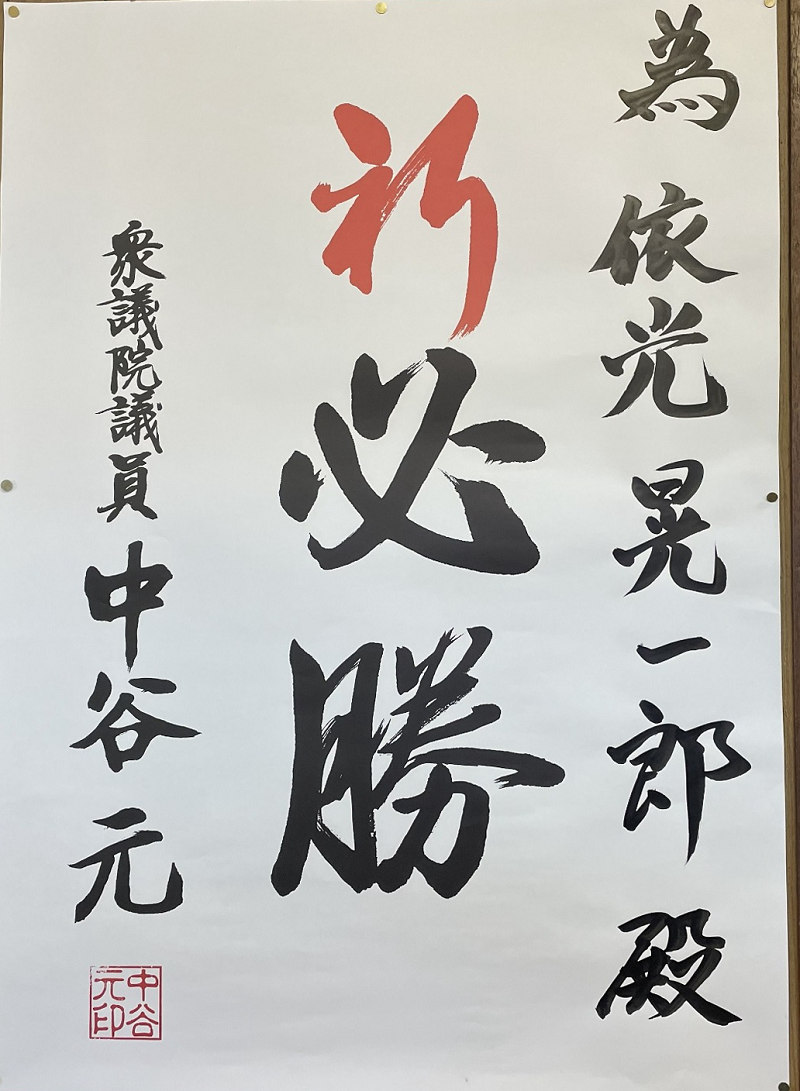 為 依光晃一郎 殿
祈必勝
衆議院議員 中谷元
中谷元印